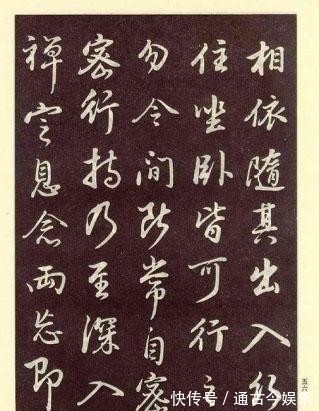 相依隨其出入行
住坐卧皆可行之
勿令間断常自密
密行持乃至深入
禅定息念両忘即
五六
快传号／通古今娱